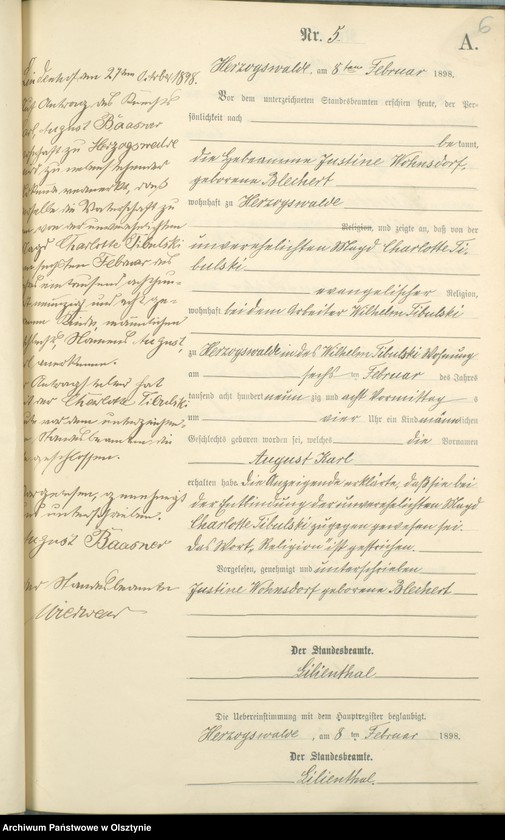 Nr. 5
A.
6
Herzogswalde, am 8ten Februar 1898.
Vor dem unterzeichneten Standesbeamten erschien heute, der Per-
sönlichkeit nach
be kannt,
die Hebeamme Justine Wohnsdorf,
geborene Blechert
wohnhaft zu Herzogswalde
Religion, und zeigte an, daß von der
unverehelichten Magd Charlotte Ti-
bulski
evangelischer Religion,
wohnhaft bei dem Arbeiter Wilhelm Tibulski
zu Herzogswalde in des Wilhelm Tibulski Wohnung
am sechs ten Februar des Jahres
tausend acht hundert neun zig und acht Vormittag s
um vier Uhr ein Kind männlichen
Geschlechts geboren worden sei, welches die Vornamen
August Karl
erhalten habe. Die Anzeigende erklärte, daß sie bei
der Entbindung der unverehelichten Magd
Charlotte Tibulski zugegen gewesen sei.
Das Wort „Religion" ist gestrichen.
Vorgelesen, genehmigt und unterschrieben
Justine Wohnsdorf geborene Blechert
Der Standesbeamte.
Lilienthal
Die Uebereinstimmung mit dem Hauptregister beglaubigt.
Herzogswalde, am 8 ten Februar 1898.
Der Standesbeamte.
Lilienthal.
den 27ten Oktober 1898.
Antrag des
August Baasner
zu Herzogswalde
zu
vermerkt, daß
die Vaterschaft zu
von der unverehelichten
Charlotte Tibulski
sechsten Februar des
eintausend achthun-
neunzig und acht ge-
Kindes, männlichen
Namens August,
Antragsteller hat
der Charlotte Tibulski
vor dem unterzeichne-
Standesbeamten die
geschlossen.
Vorgelesen, genehmigt
unterschrieben.
August Baasner
Der Standesbeamte
Archiwum Państwowe w Olsztynie